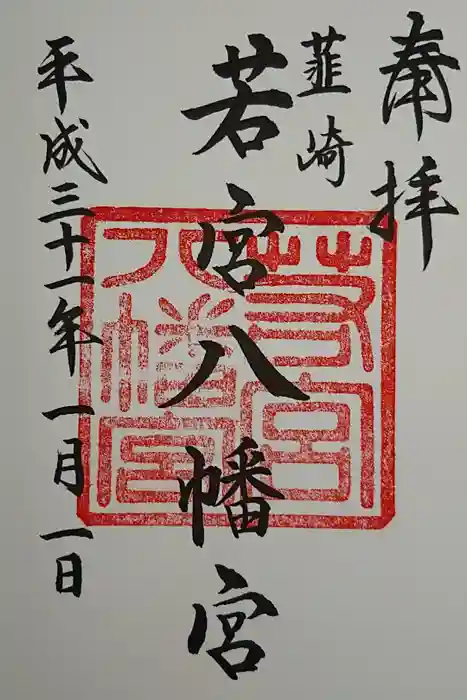 奉拝
韮崎
若宮八幡宮
平成三十一年一月一日
若宮
八幡宮